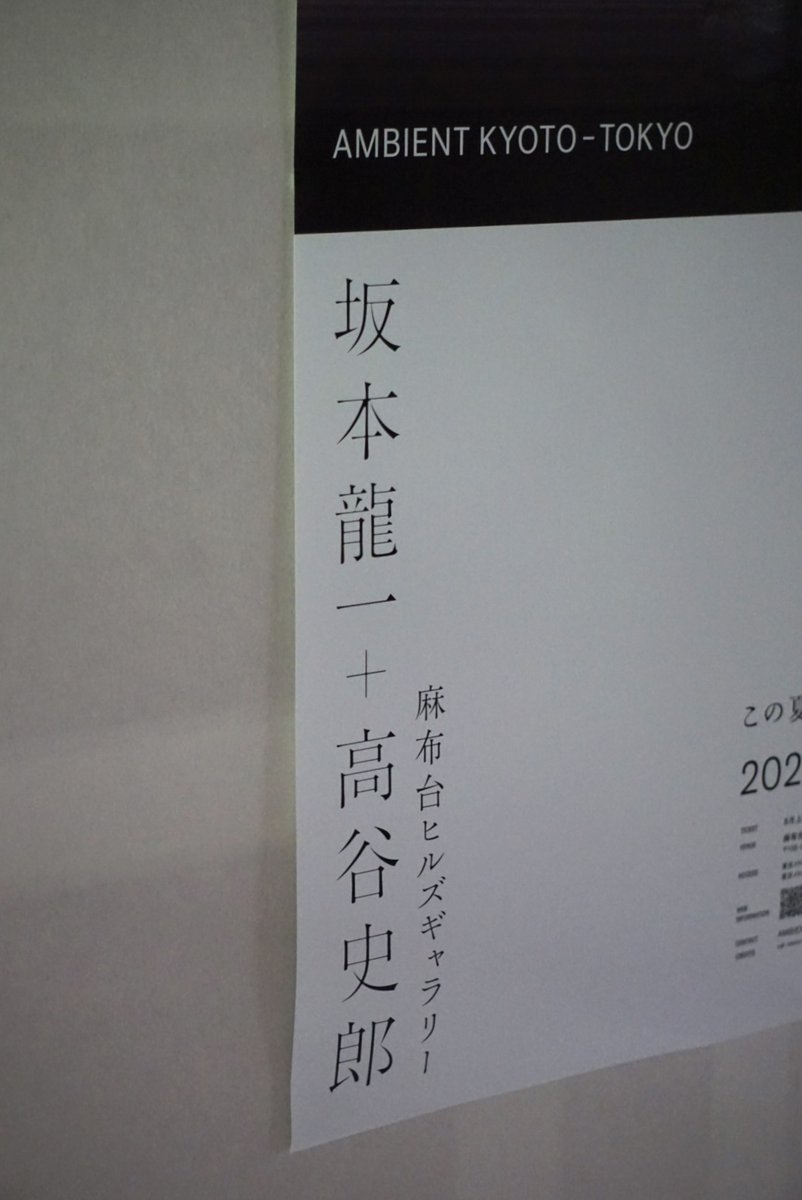 AMBIENT KYOTO–TOKYO
坂本龍一+高谷史郎
麻布台ヒルズギャラリー
この夏
202